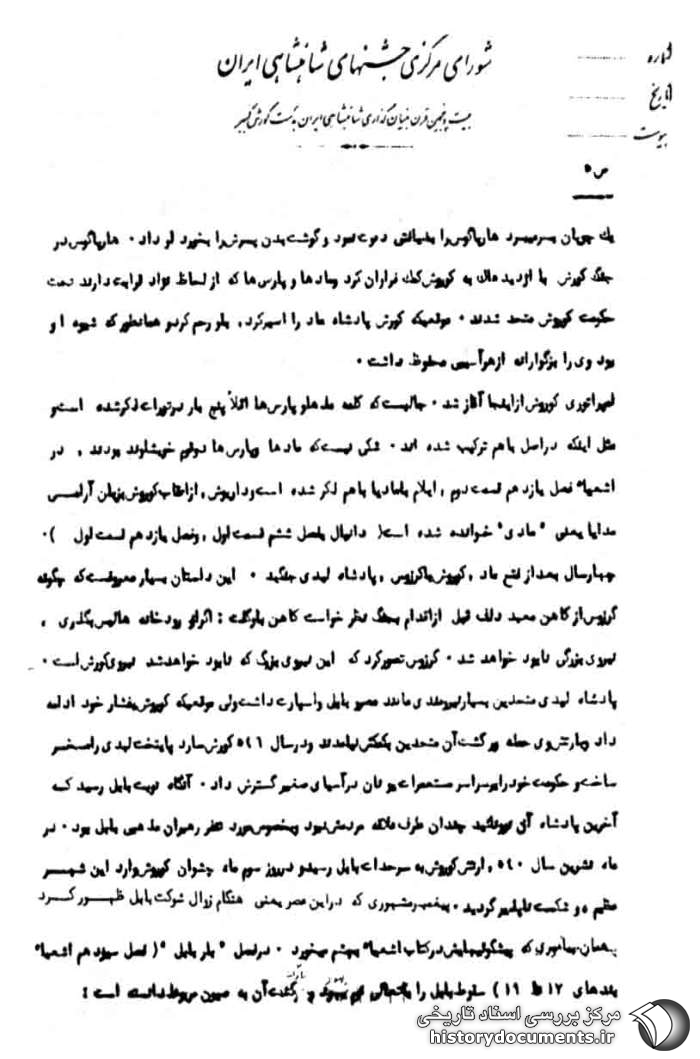 شورای مرکزی جشنهای شاهنشاهی ایران
بیست و پنجمین قرن بنیان گذاری شاهنشاهی ایران بدست کورش کبیر
شماره
تاریخ
پیوست
ص ۵
یك چوپان بسر میبرد هارپاگوس را بضیافتی دعوت نمود و گوشت بدن پسرش را بخورد او داد ۰ هارپاگوس در
جنگ کورش با اژدیدهاك به کوروش کمك فراوان کرد ومادها و پارس ها که از لحاظ نژاد قرابت دارند تحت
حکومت کوروش متحد شدند ۰ موقعیکه کورش پادشاه ماد را اسیر کرد , باو رحم کرد و همانطور که شیوه او
بود وی را بزرگوارانه از هر آسیبی محفوظ داشت ۰
امپراتوری کوروش از اینجا آغاز شد ۰ جالبست که کلمه مادها و پارس ها اقلاً پنج بار در تورات ذکر شده است و
مثل اینکه در اصل با هم ترکیب شده اند ۰ شکی نیست که مادها وپارس ها دو قوم خویشاوند بودند , در
اشعیا" فصل یازدهم قسمت دوم , ایلام با مادیا با هم ذکر شده است و داریوش , از اعقاب کوروش بزبان آرامی
مدایا یعنی " مادی" خوانده شده است ( دانیال فصل ششم قسمت اول , وفصل یازدهم قسمت اول ) ۰
چهار سال بعد از فتح ماد , کوروش با کرزوس , پادشاه لیدی جنگید ۰ این داستان بسیار معروفست که چگونه
کرزوس از کاهن معبد دلف قبل از اقدام بجنگ نظر خواست کاهن باو گفت : اگر از رودخانه هالیس بگذری ,
نیروی بزرگی نابود خواهد شد ۰ کرزوس تصور کرد که این نیروی بزرگ که نابود خواهد شد نیروی کورش است ۰
پادشاه لیدی متحدین بسیار نیرومندی مانند مصر و بابل و اسپارت داشت ولی موقعیکه کوروش بفشار خود ادامه
داد وبارتش وی حمله ور گشت آن متحدین بکمکش نیامدند و در سال ۵٤٦ کورش سارد پایتخت لیدی را مسخر
ساخت و حکومت خود را بر سراسر مستعمرات یونان در آسیای صغیر گسترش داد ۰ آنگاه نوبت بابل رسید که
آخرین پادشاه آن نبونئید چندان طرف علاقه مردمش نبود وبخصوص مورد تنفر رهبران مذهبی بابل بود ۰ در
ماه تشرین سال ۵٤۰ , ارتش کوروش به سرحدات بابل رسید و در روز سوم ماه چشوان کوروش وارد این شهر
عظیم و شکست ناپذیر گردید ۰ پیغمبر مشهوری که در این عصر یعنی هنگام زوال شوکت بابل ظهور کرد
همان پیامبری که پیشگوئیهایش در کتاب اشعیا" بچشم میخورد ۰ در فصل " بار بابل " ( فصل سیزدهم اشعیا"
بندهای ۱۷ تا ۱۹ ) سقوط بابل را گشت آن به صیون مربوط دانسته است :
مرکز بررسی اسناد تاریخی
historydocuments.ir